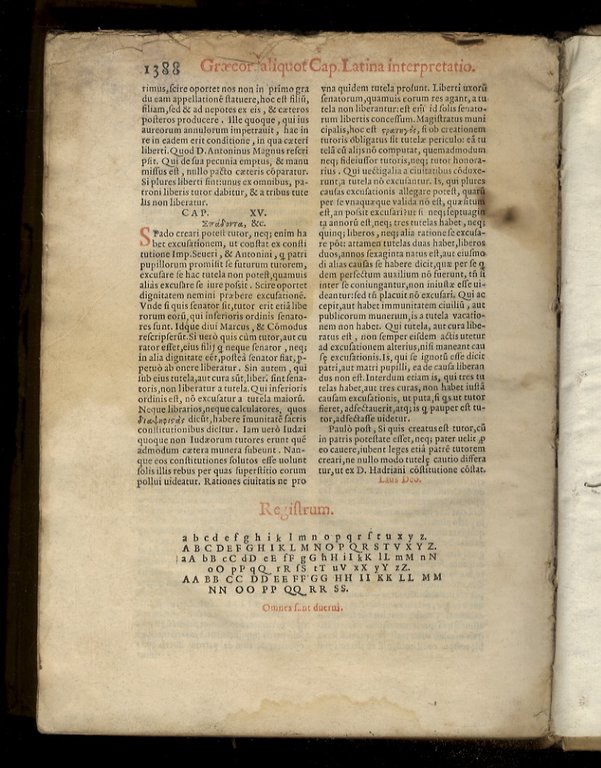 1388 Græcor. aliquot Cap. Latina interpretatio.
rimus, scire oportet nos non in primo gra
du eam appellationē statuere, hoc est filiū,
filiam, sed & ad nepotes ex eis, & cæteros
posteros producere. Ille quoque, qui ius
aureorum annulorum impetrauit, hac in
re in eadem erit conditione, in qua cæteri
liberi. Quod D. Antoninus Magnus rescri
psit. Qui de sua pecunia emptus, & manu
missus est, nullo pacto cæteris cōparatur.
Si plures liberti sint: unus ex omnibus, pa-
troni liberis tutor dabitur, & a tribus tute
lis non liberatur.
CAP. XV.
Σπάδοντα, &c.
SPado creari potest tutor, neq; enim ha
bet excusationem, ut constat ex consti
tutione Imp. Seueri, & Antonini, q patri
pupillorum promisit se futurum tutorem,
excusare se hac tutela non potest, quamuis
alias excusare se iure possit. Scire oportet
dignitatem nemini præbere excusationē.
Vnde si quis senator sit, tutor erit etiā libe
rorum eorū, qui inferioris ordinis senato-
res sunt. Idque diui Marcus, & Cōmodus
rescripserūt. Si uerò quis cùm tutor, aut cu
rator esset, eius filij q neque senator, neq;
in alia dignitate eēt, posteà senator fiat, p-
petuò ab onere liberatur. Sin autem, qui
sub eius tutela, aut cura sūt, liberi sint sena-
toris, non liberatur a tutela. Qui inferioris
ordinis est, nō excusatur a tutela maiorū.
Neque librarios, neque calculatores, quos
dicūt, habere īmunitatē sacris
constitutionibus dicitur. Iam uerò Iudæi
quoque non Iudæorum tutores erunt quē
admodum cætera munera subeunt. Nan-
que eos constitutiones solutos esse uolunt
solis illis rebus per quas superstitio eorum
pollui uideatur. Rationes ciuitatis ne pro
vna quidem tutela prosunt. Liberti uxorū
senatorum, quamuis eorum res agant, a tu
tela non liberantur: est em̄ id solis senato-
rum libertis concessum. Magistratus muni
cipalis, hoc est στρατηγὸς, si ob creationem
tutoris obligatus sit tutelæ periculo: eā tu
telā cū alijs nō computat, quemadmodum
neq; fideiussor tutoris, neq; tutor honora-
rius. Qui uectigalia a ciuitatibus cōduxe-
runt, a tutela nō excusantur. Is, qui plures
causas excusationis allegare potest, quarū
per se vnaquæque valida nō est, quæsitum
est, an possit excusari: ut si neq; septuagin
ta annorū est, neq; tres tutelas habet, neq;
quinq; liberos, neq; alia ratione se excusa-
re pōt: attamen tutelas duas habet, liberos
duos, annos sexaginta natus est, aut eiusmo
di alias causas se habere dicit, quæ per se q
dem perfectum auxilium nō ferunt, tñ si
inter se coniungantur, non iniustæ esse ui-
deantur: sed tñ placuit nō excusari. Qui ac
cepit, aut habet immunitatem ciuiliū, aut
publicorum munerum, is a tutela vacatio-
nem non habet. Qui tutela, aut cura libe-
ratus est, non semper eisdem actis utetur
ad excusationem alterius, nisi maneant cau
sę excusationis. Is, qui se ignotū esse dicit
patri, aut matri pupilli, ea de causa liberan
dus non est. Interdum etiam is, qui tres tu
telas habet, aut tres curas, non habet iustā
causam excusationis, ut puta, si qs ut tutor
fieret, adfectauerit, atq; is q pauper est tu-
tor, adfectasse uidetur.
Paulò post, Si quis creatus est tutor, cū
in patris potestate esset, neq; pater uelit p
eo cauere, iubent leges etiā patrē tutorem
creari, ne nullo modo tutelę cautio differa
tur, ut ex D. Hadriani cōstitutione cōstat.
Laus Deo.
Registrum.
a b c d e f g h i k l m n o p q r s t u x y z.
A B C D E F G H I K L M N O P Q R S T V X Y Z.
aA bB cC dD eE fF gG hH iI kK lL mM nN
oO pP qQ rR sS tT uV xX yY zZ.
AA BB CC DD EE FF GG HH II KK LL MM
NN OO PP QQ RR SS.
Omnes sunt duerni.